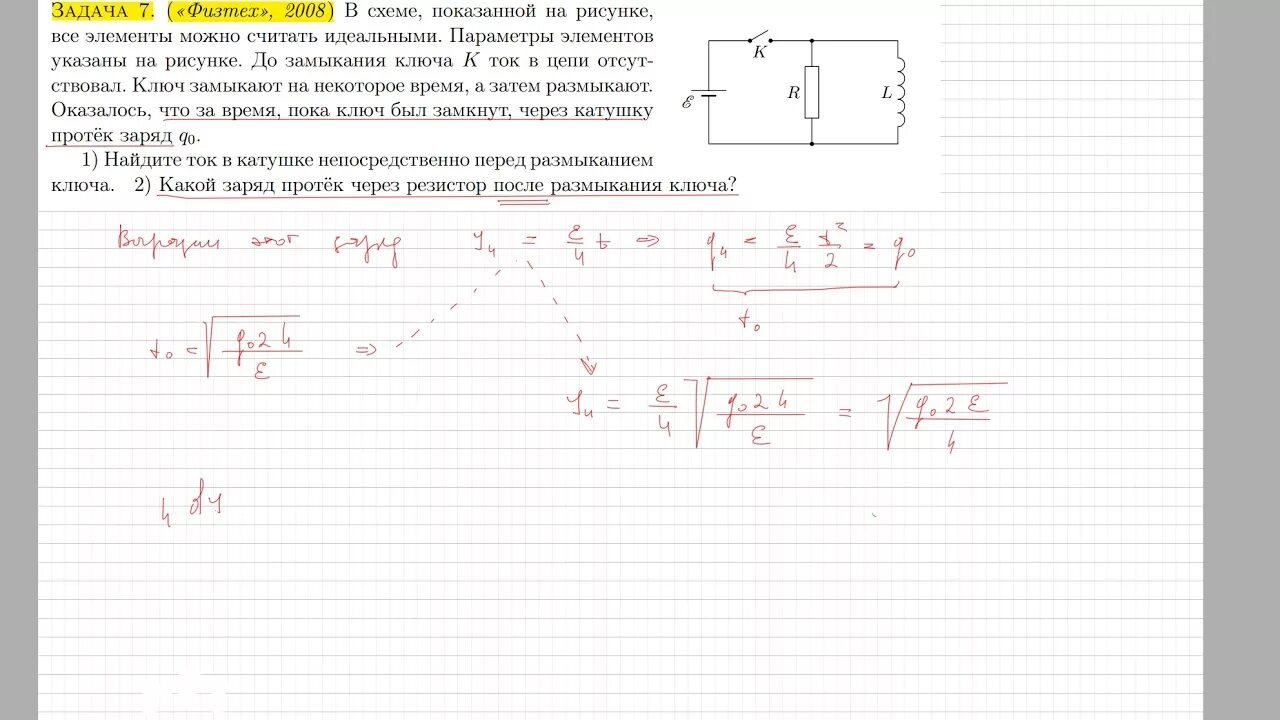 ЗАДАЧА 7. («Физтех», 2008) В схеме, показанной на рисунке,
все элементы можно считать идеальными. Параметры элементов
указаны на рисунке. До замыкания ключа K ток в цепи отсут-
ствовал. Ключ замыкают на некоторое время, а затем размыкают.
Оказалось, что за время, пока ключ был замкнут, через катушку
протёк заряд q₀.
1) Найдите ток в катушке непосредственно перед размыканием
ключа. 2) Какой заряд протёк через резистор после размыкания ключа?
K
ℰ
R
L
этот заряд
I_L = ε/L t ⇒ q_L = ε/L t²/2 = q₀
t₀
t₀ = √(q₀2L/ε) ⇒
I_L = ε/L √(q₀2L/ε) = √(q₀2ε/L)
L dI